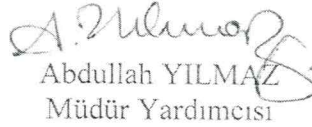 A. Yılmaz
Abdullah YILMAZ
Müdür Yardımcısı